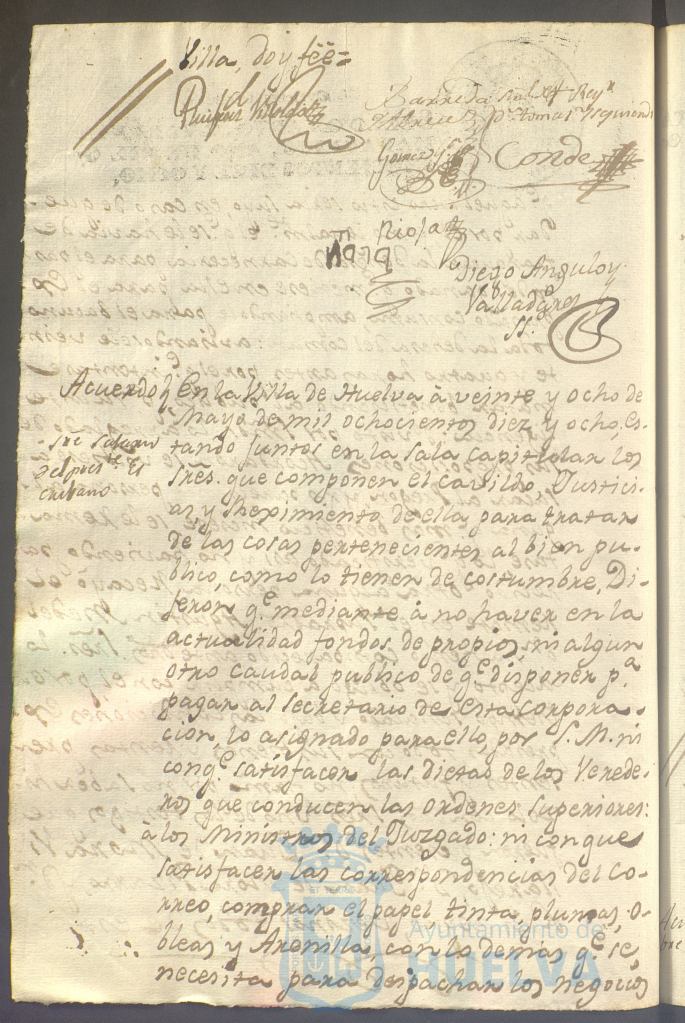 Villa, doy fèe=
Barreda
Gomez
Conde
Rioja
Diego Angulo y
Valladares
SS.º
Acuerdo
En la Villa de Huelva à veinte y ocho de
Mayo de mil ochocientos diez y ocho, es-
tando juntos en la sala capitular los
Sres. que componen el Cavildo, Justici-
as y Reximiento de ella para tratar
de las cosas pertenecientes al bien pu-
blico, como lo tienen de costumbre, Di-
jeron q.e mediante à no haver en la
actualidad fondos de propios, ni algun
otro caudal publico de q.e disponer p.a
pagar al Secretario de esta corpora-
cion, lo asignado para ello, por S. M. ni
con q.e satisfacer las dietas de los Verede-
ros que conducen las ordenes superiores:
à los Ministros del Juzgado: ni con que
satisfacer las correspondencias del Co-
rreo, comprar el papel tinta, plumas, o-
bleas y Arenilla, con lo demas q.e se
necesita para despachar los negocios
Sre salario
del pres.te Es
cribano
Ayuntamiento de
HUELVA